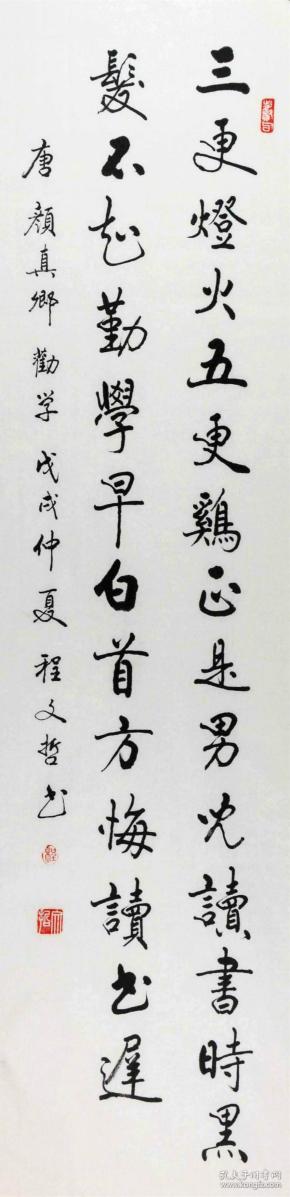 三更燈火五更鷄正是男兒讀書時黑
髮不知勤學早白首方悔讀书遲
唐顏真鄉勸学戊戌仲夏程文哲书
孔夫子旧书网
www.kongfz.com